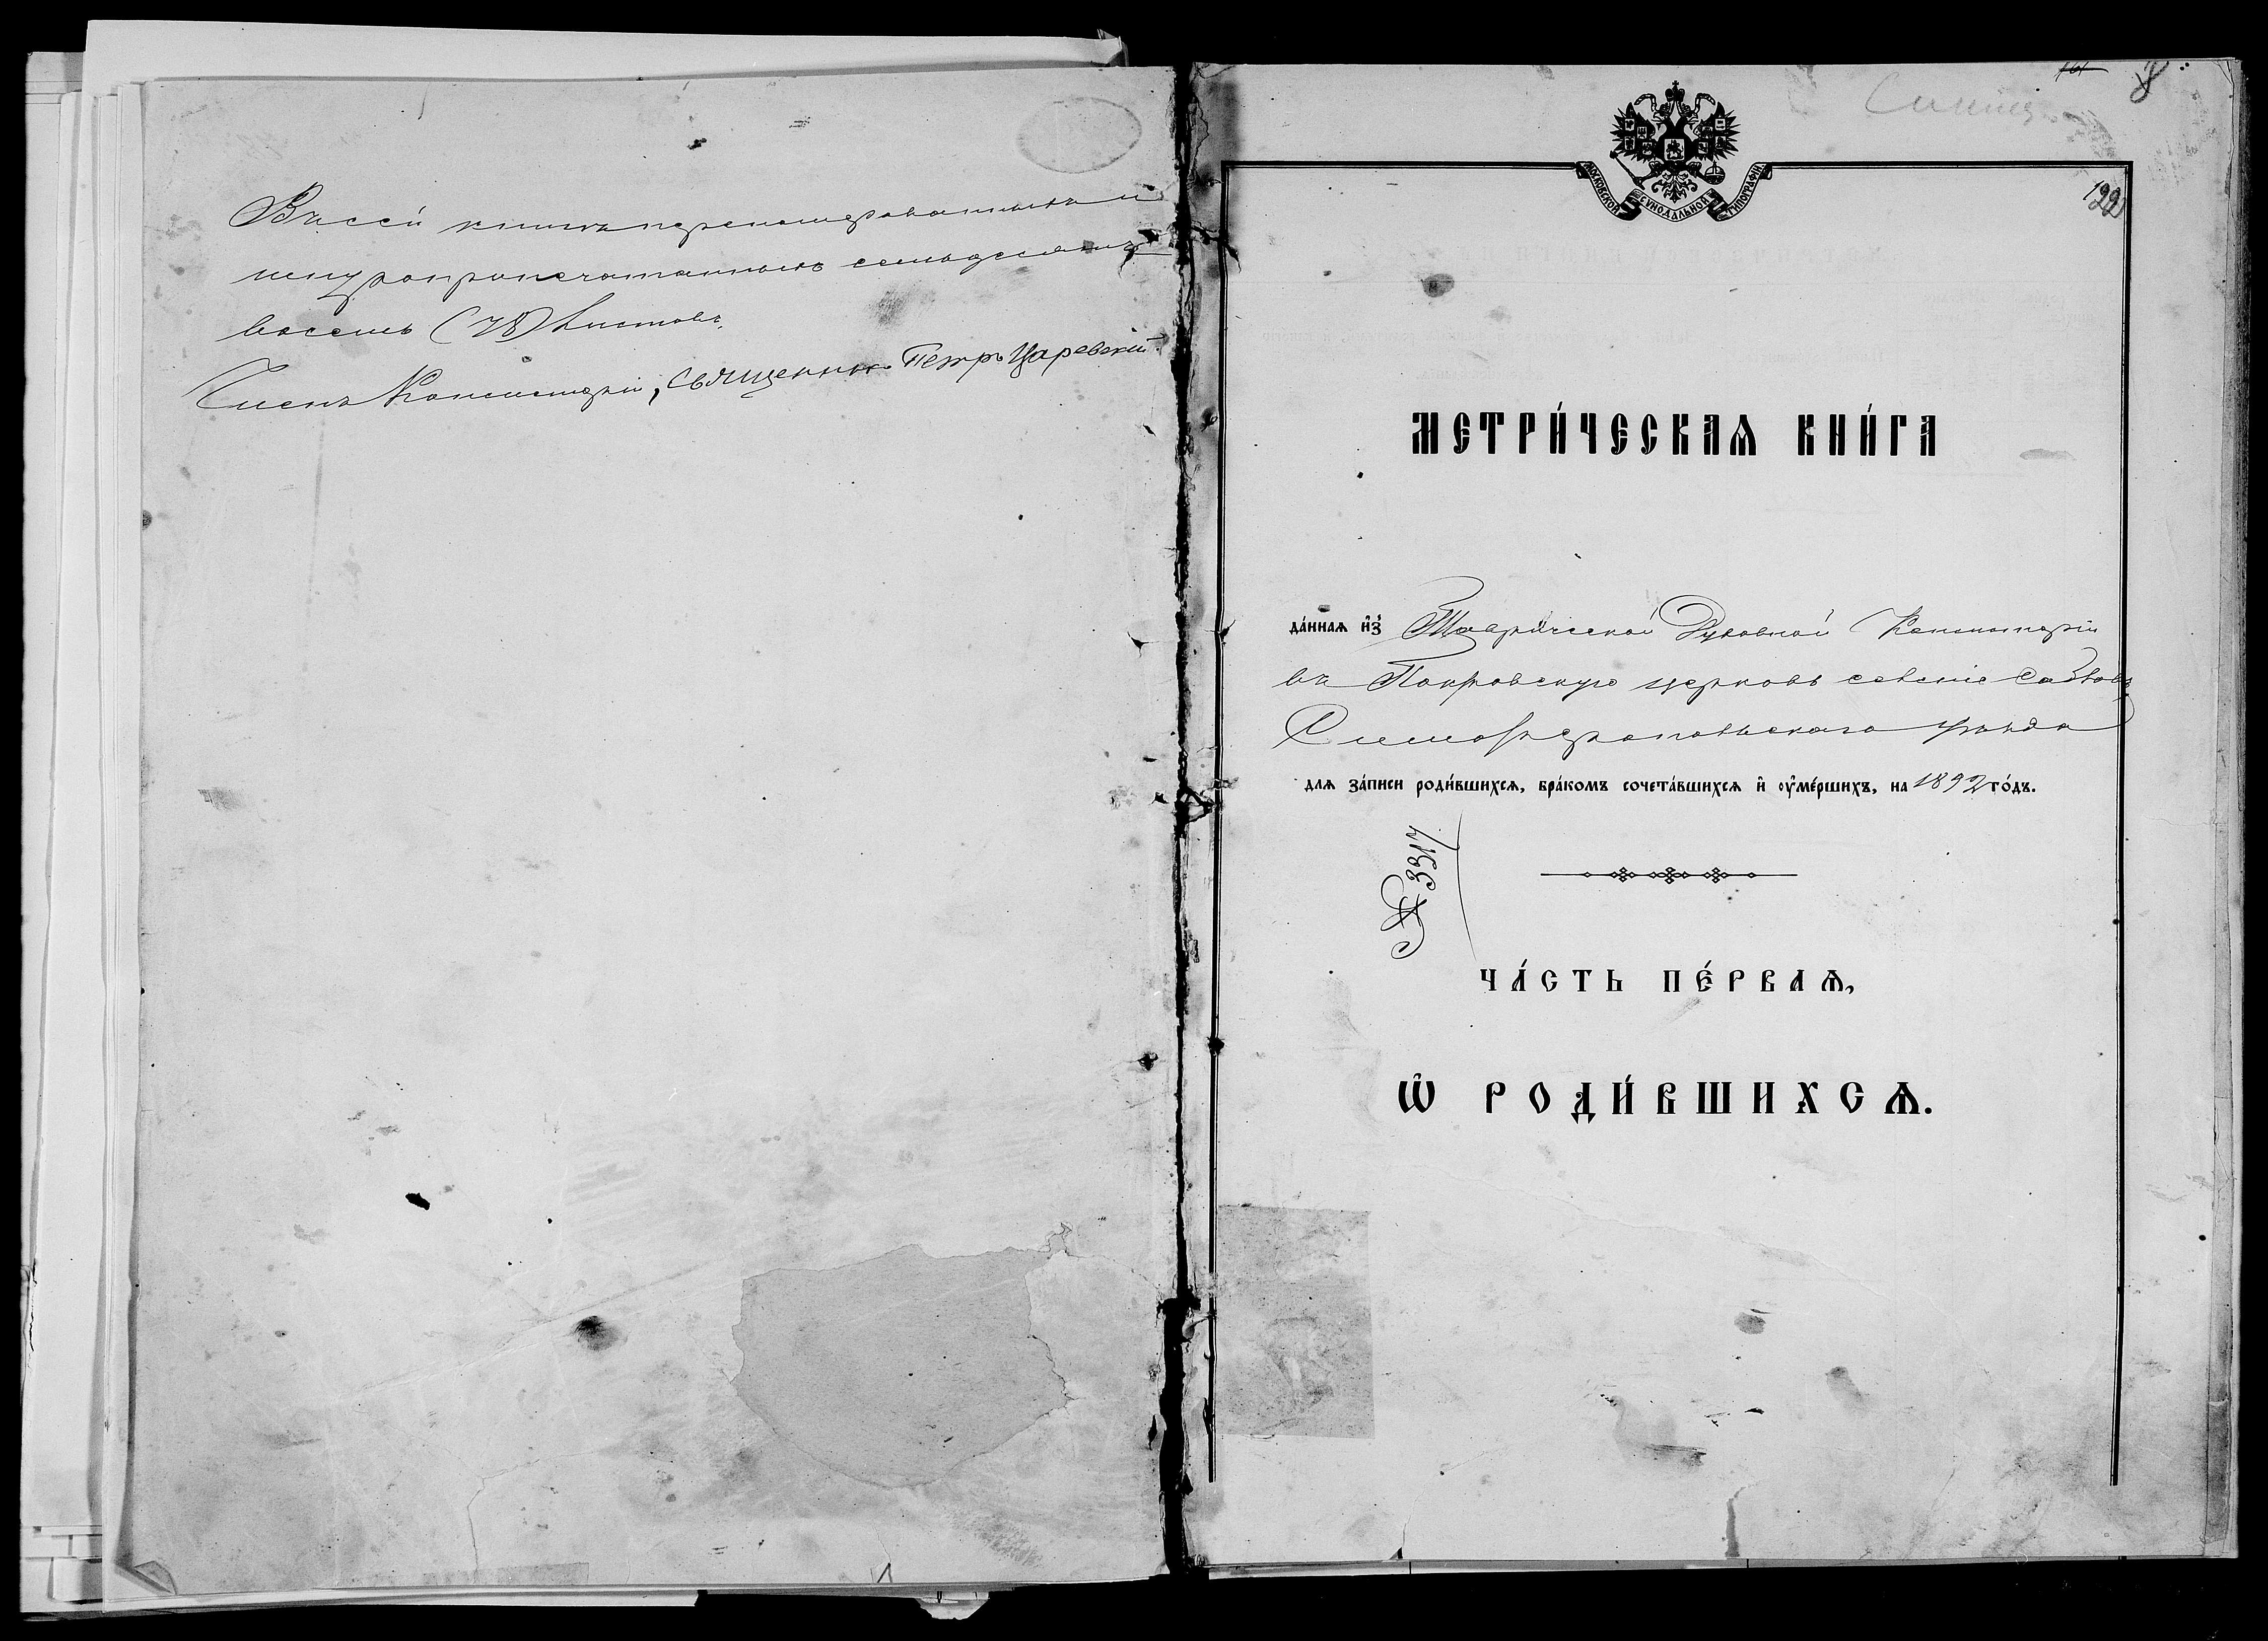 Въ сей книгѣ перенумерованныхъ и
шнуропропечатанныхъ семьдесятъ
восемь (78) листовъ.
Членъ Консисторіи, Священникъ Петръ Царевскій.
МОСКОВСКОЙ СѴНОДАЛЬНОЙ ТИПОГРАФІИ
МЕТРИ́ЧЕСКАѦ КНИ́ГА
да́ннаѧ и҆з̾ Таврической Духовной Консисторіи
въ Покровскую церковь селенія Сабловъ
Симферопольскаго уѣзда
длѧ за́писи роди́вшихсѧ, бра́комъ сочета́вшихсѧ и҆ ѹ҆ме́ршихъ, на 1892 го́дъ.
№ 3317
ЧА́СТЬ ПЕ́РВАѦ,
Ѡ҆ РОДИ́ВШИХСѦ.